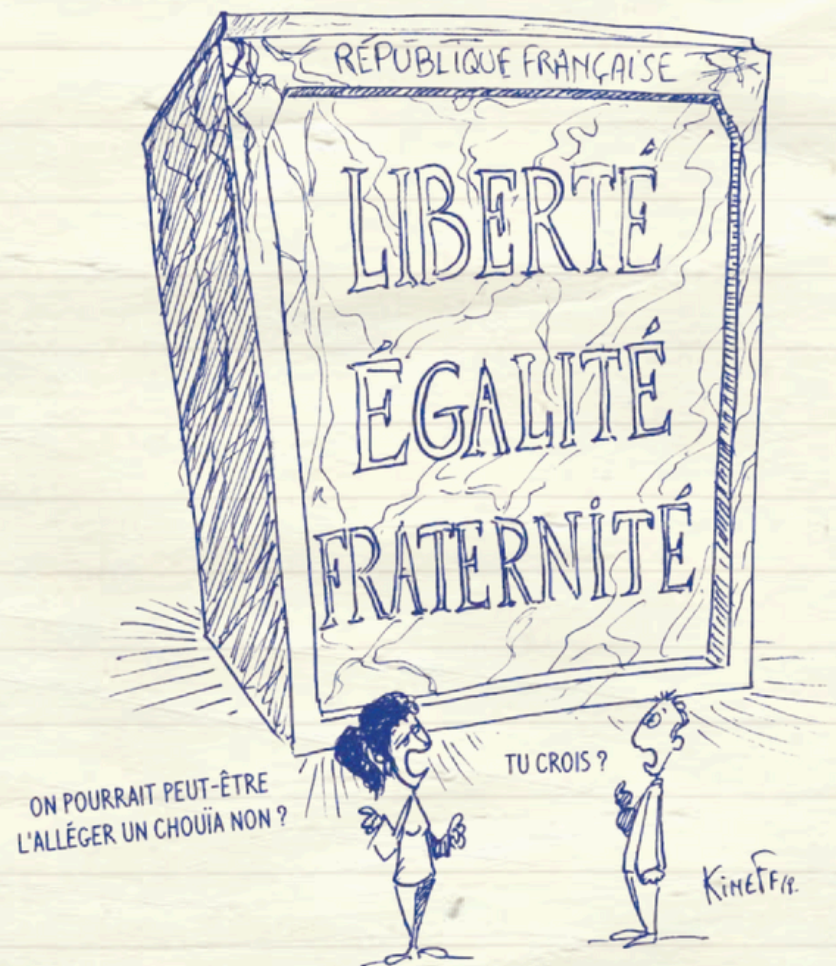 RÉPUBLIQUE FRANÇAISE
LIBERTÉ
ÉGALITÉ
FRATERNiTÉ
ON POURRAIT PEUT-ÊTRE
L'ALLÉGER UN CHOUÏA NON ?
TU CROIS ?